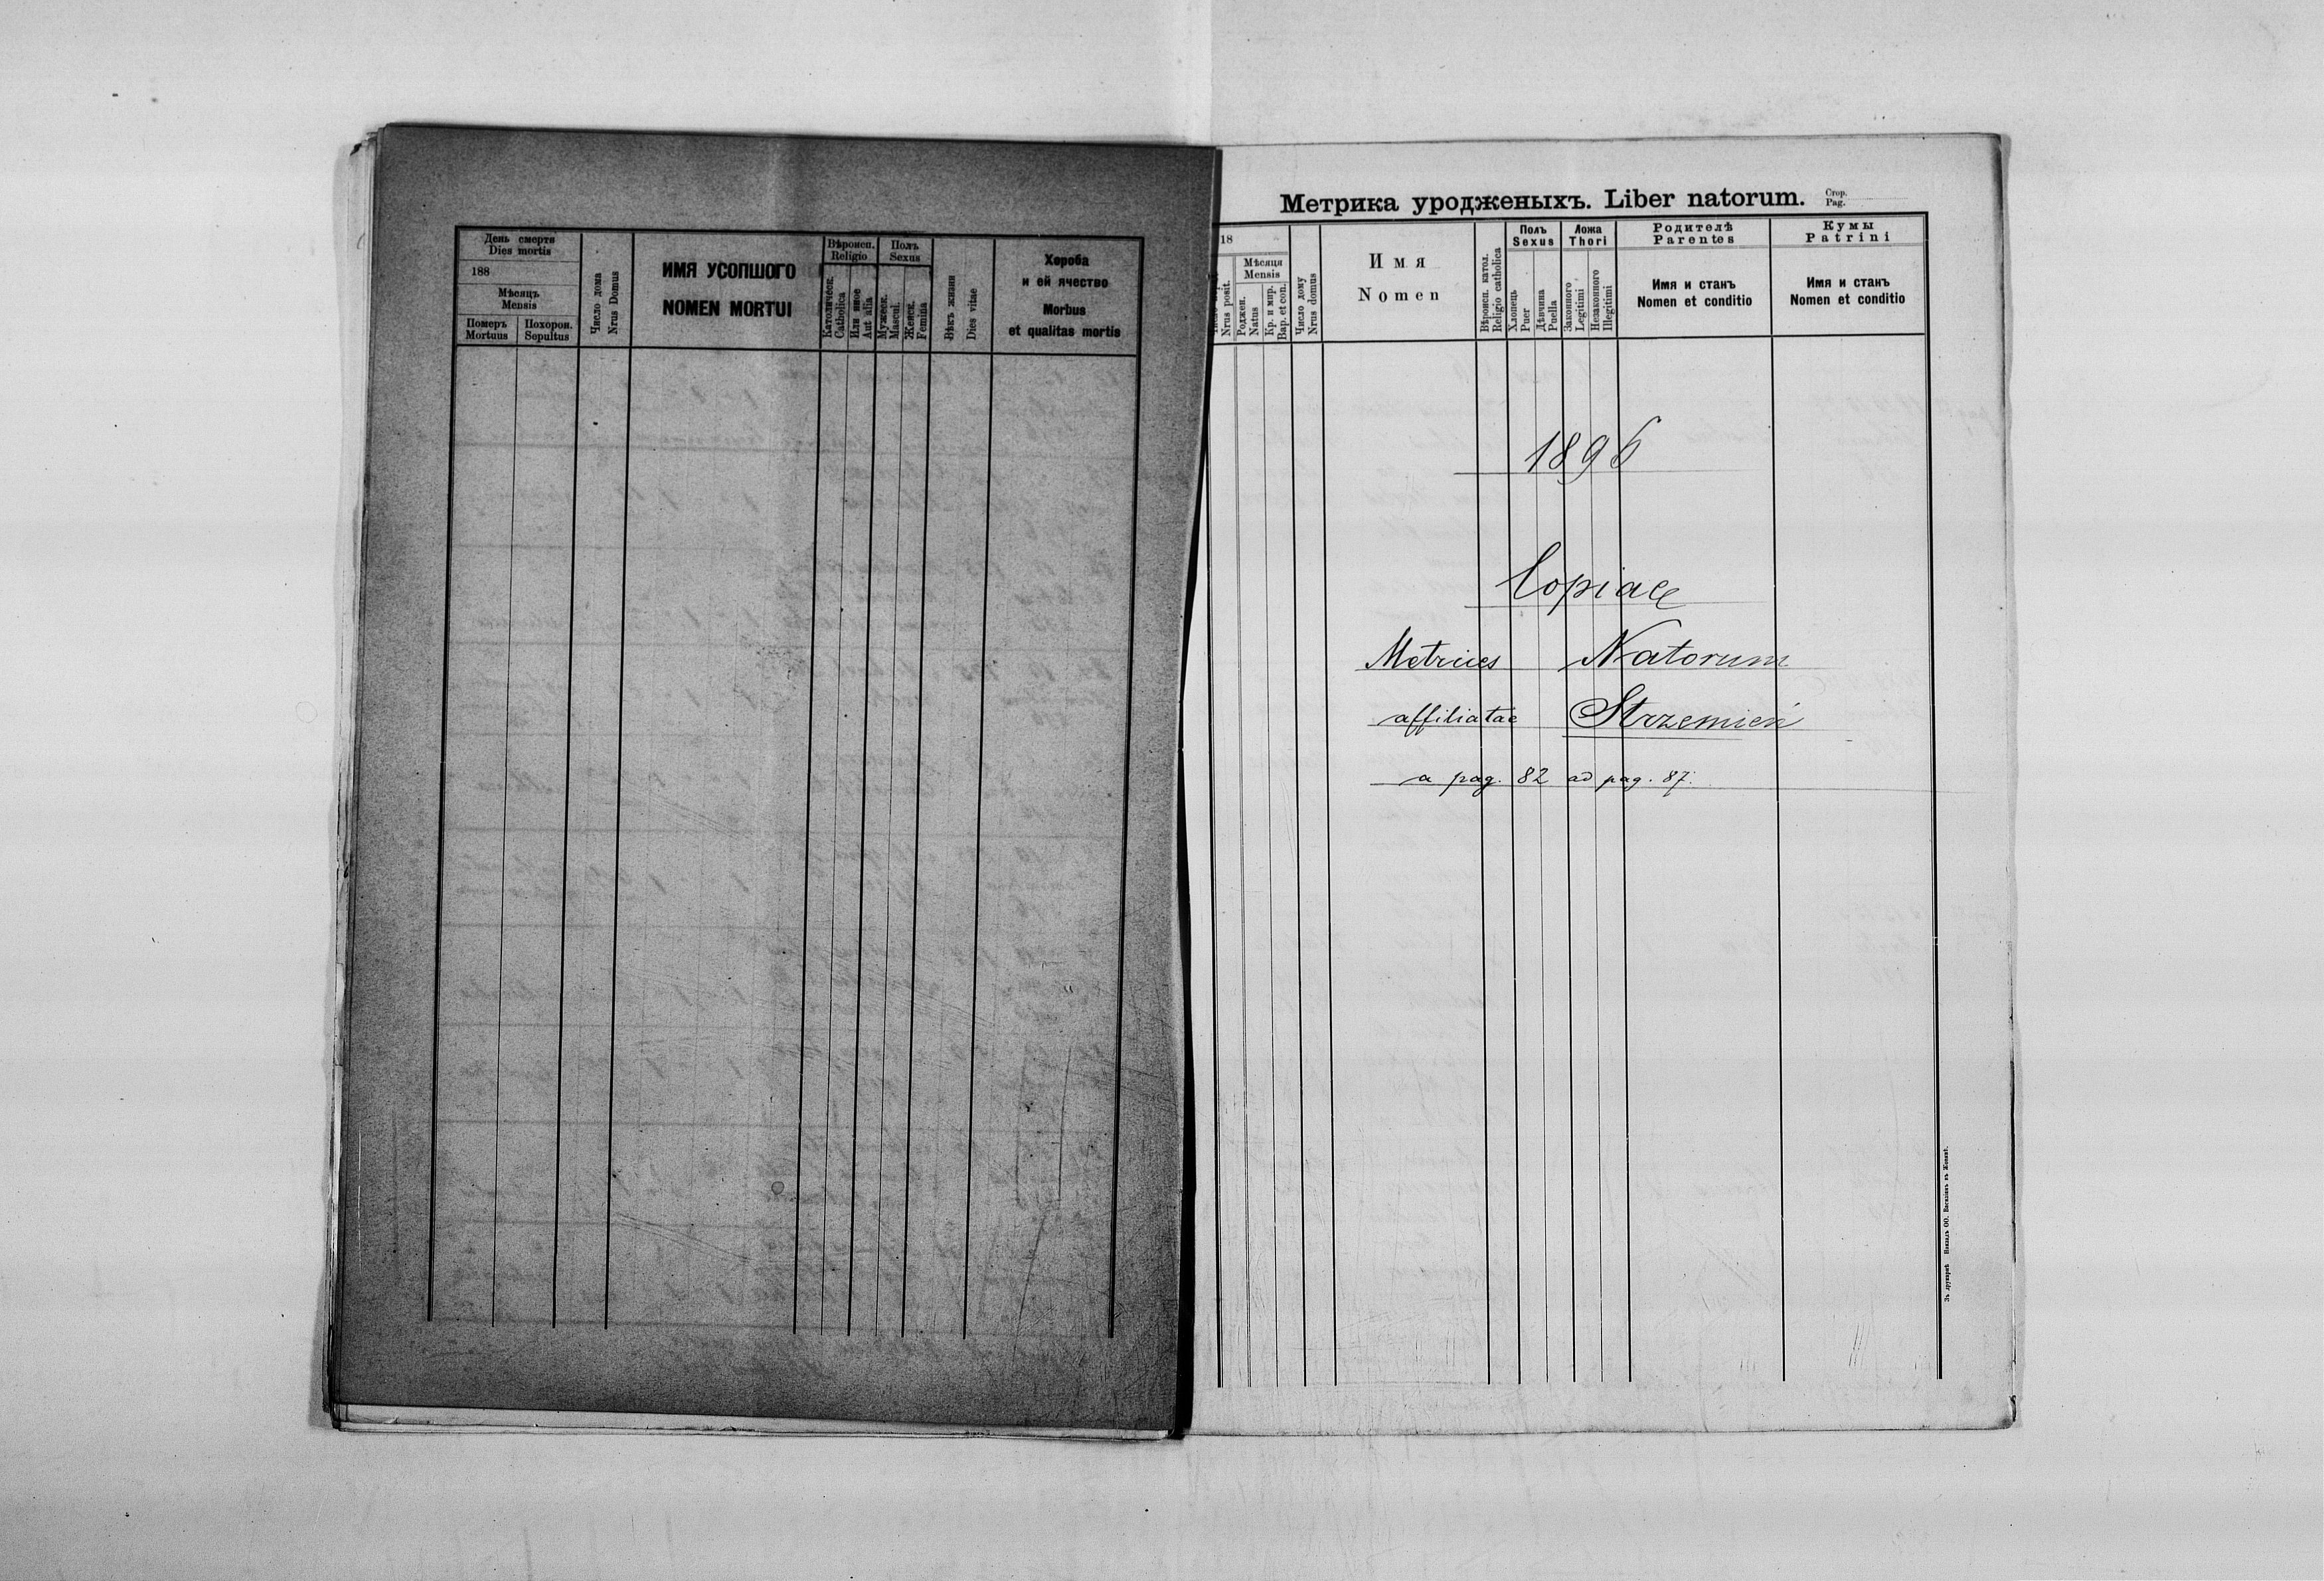 День смерти
Dies mortis
188
Мѣсяцъ
Mensis
Померъ
Mortuus
Похорон.
Sepultus
Число дома
Nrus Domus
ИМЯ УСОПШОГО
NOMEN MORTUI
Вѣроисп.
Religio
Католическ.
Catholica
Или иное
Aut alia
Полъ
Sexus
Мужеск.
Mascul.
Женск.
Femina
Вѣкъ жизни
Dies vitae
Хороба
и ей ячество
Morbus
et qualitas mortis
Метрика уродженыхъ. Liber natorum.
Стор.
Pag.
18
Nrus posit.
Мѣсяця
Mensis
Роджен.
Natus
Кр. и мир.
Bap. et con.
Число дому
Nrus domus
Имя
Nomen
Вѣроисп. катол.
Religio catholica
Полъ
Sexus
Хлопець
Puer
Дѣвчина
Puella
Ложа
Thori
Законного
Legitimi
Незаконного
Illegitimi
Родителѣ
Parentes
Имя и станъ
Nomen et conditio
Кумы
Patrini
Имя и станъ
Nomen et conditio
1896
Copiae
Metrices Natorum
affiliatae Strzemień
a pag. 82 ad pag. 87.